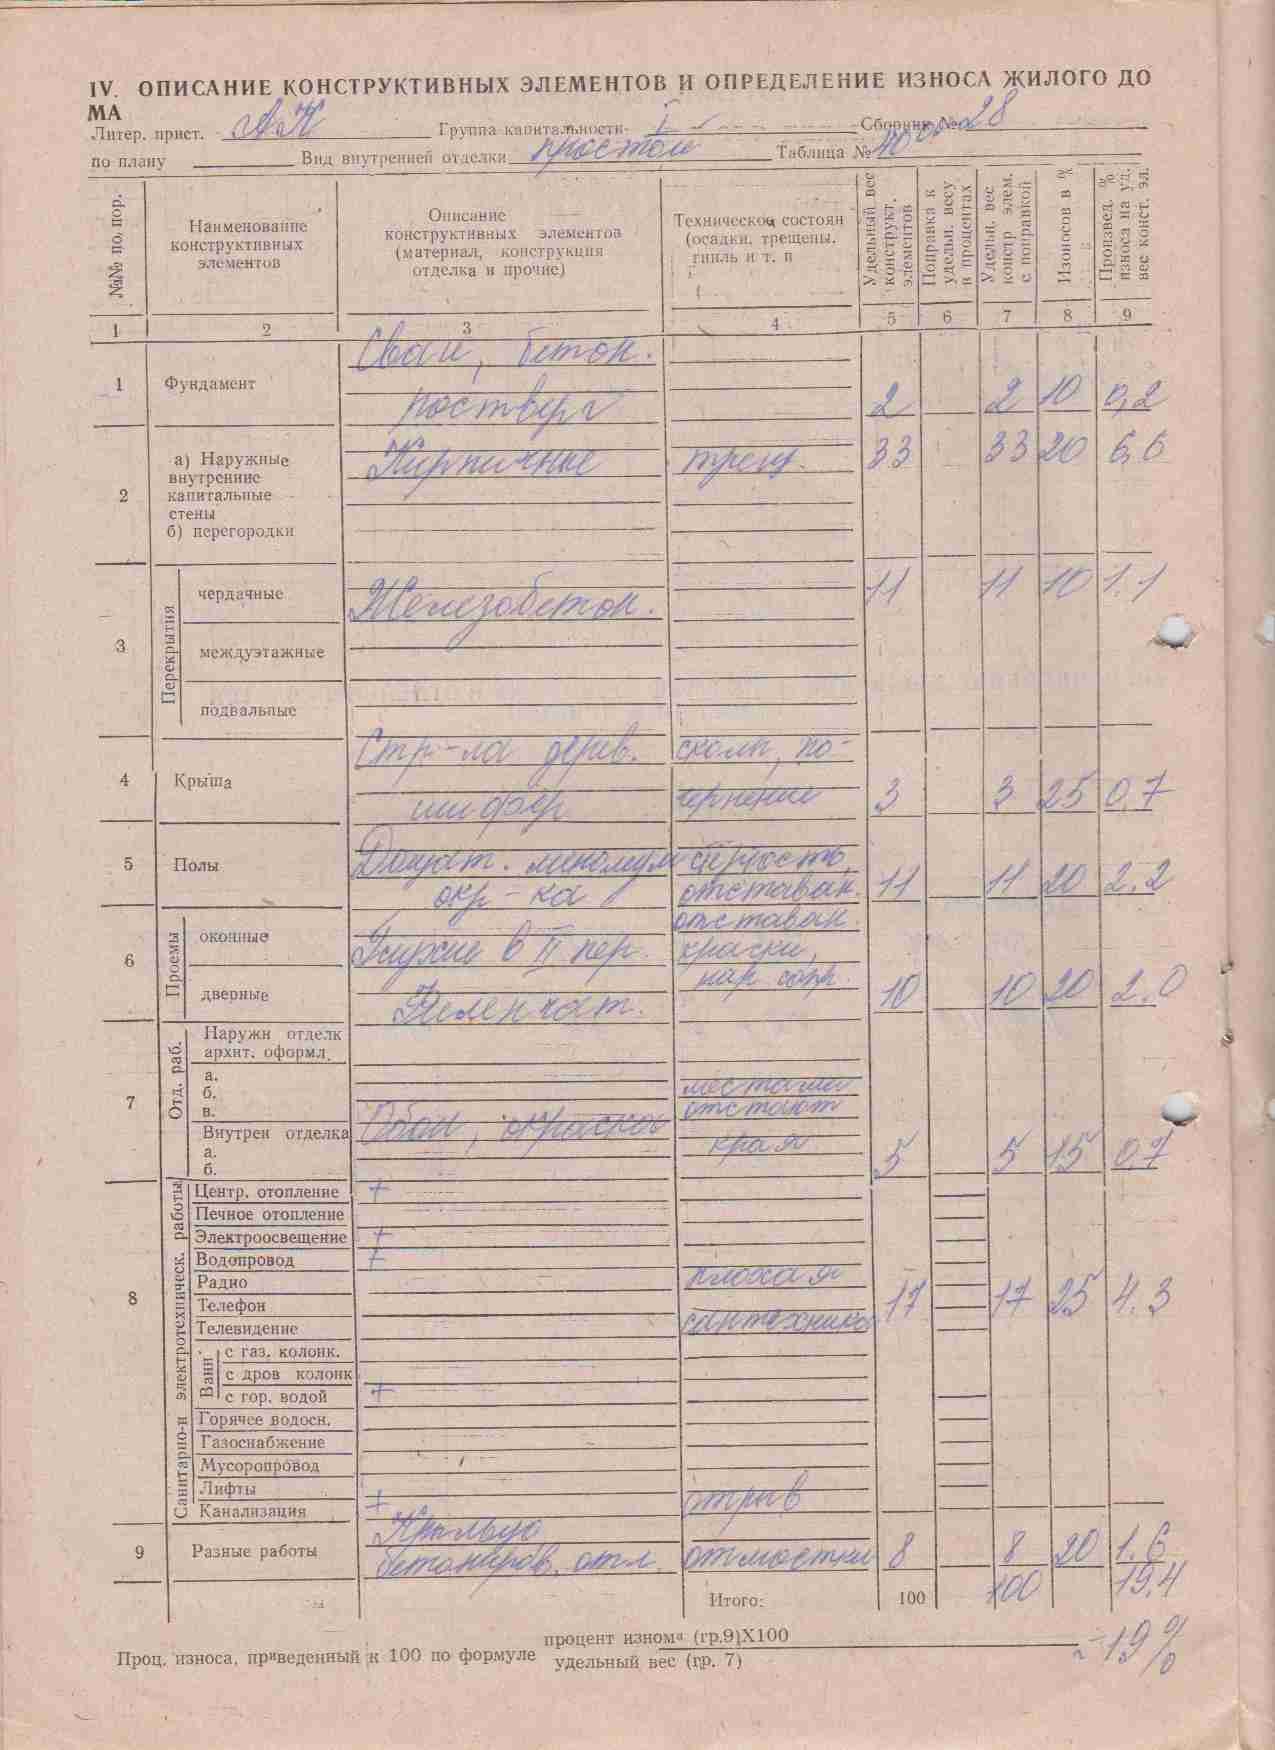 IV. ОПИСАНИЕ КОНСТРУКТИВНЫХ ЭЛЕМЕНТОВ И ОПРЕДЕЛЕНИЕ ИЗНОСА ЖИЛОГО ДО
МА
Литер. прист. АК Группа капитальности I Сборник № 28
по плану Вид внутренней отделки простой Таблица № 40
№№ по пор.
Наименование
конструктивных
элементов
Описание
конструктивных элементов
(материал, конструкция
отделка и прочие)
Техническое состоян
(осадки, трещены,
гниль и т. п
Удельный вес
конструкт.
элементов
Поправка к
удельн. весу
в процентах
Удельн. вес
констр элем.
с поправкой
Изоносов в %
Произвед. %
износа на уд.
вес конст. эл.
1 2 3 4 5 6 7 8 9
Сваи, бетон.
1 Фундамент
ростверг 2 2 10 0,2
а) Наружные Кирпичные трещ. 33 33 20 6,6
внутренние
2 капитальные
стены
б) перегородки
3 Перекрытия
чердачные Железобетон. 11 11 10 1.1
междуэтажные
подвальные
Стр-ла дерев. сколы, по-
4 Крыша шифер чернение 3 3 25 0.7
5 Полы Дощат. линолиум
окр-ка отставан. 11 11 20 2.2
6 Проемы
отставан.
оконные Глухие в II пер. краски,
дверные Филенчат. 10 10 20 2.0
7 Отд. раб.
Наружн отделк
архит. оформл.
а.
б. местами
в. отстают
Внутрен отделка Обои, окраска края 5 5 15 0.7
а.
б.
8 Санитарно-и электротехническ. работы
Центр. отопление +
Печное отопление
Электроосвещение +
Водопровод +
Радио плохая
Телефон сантехника 17 17 25 4.3
Телевидение
Ванн
с газ. колонк.
с дров колонк
с гор. водой +
Горячее водосн.
Газоснабжение
Мусоропровод
Лифты
Канализация + отрыв
Крыльцо
9 Разные работы бетониров. отл. отмостки 8 8 20 1.6
Итого: 100 100 19,4
Проц. износа, приведенный к 100 по формуле
процент износа (гр.9)X100
удельный вес (гр. 7)
19%